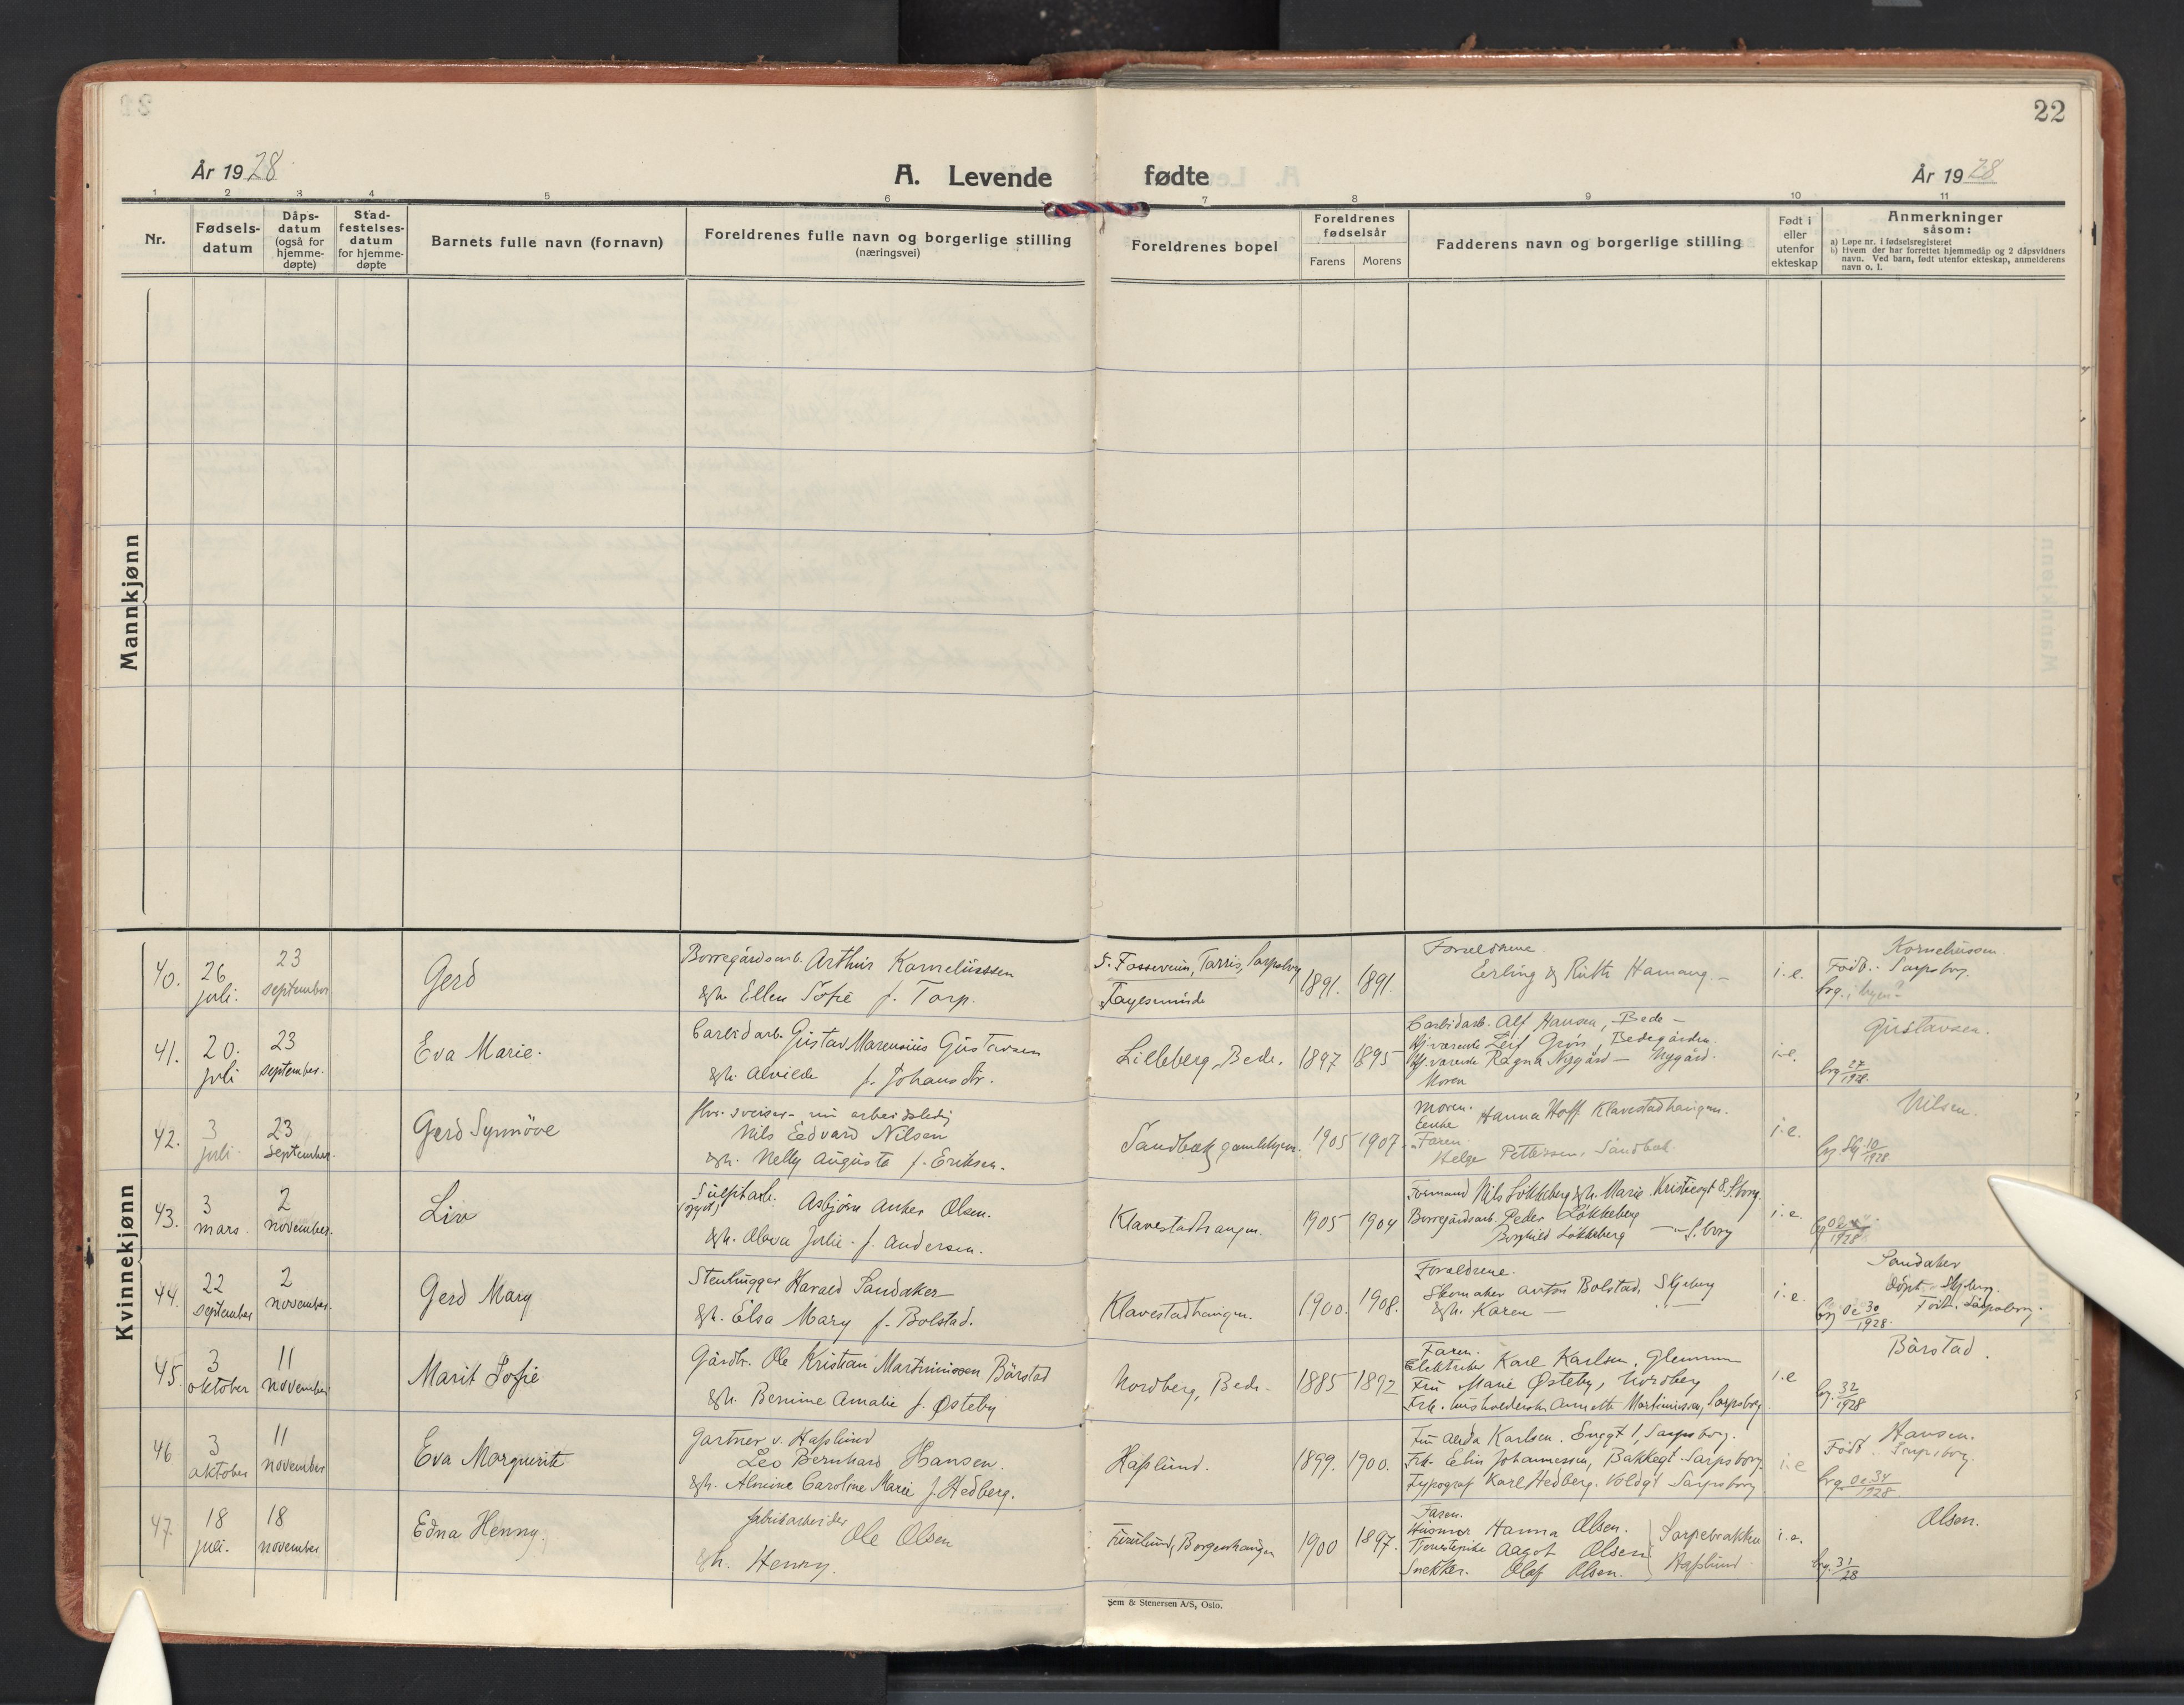 22
År 1928
A. Levende fødte
År 1928
1 2 3 4 5 6 7 8 9 10 11
Nr.
Fødsels-
datum
Dåps-
datum
(også for
hjemme-
døpte)
Stad-
festelses-
datum
for hjemme-
døpte
Barnets fulle navn (fornavn)
Foreldrenes fulle navn og borgerlige stilling
(næringsvei)
Foreldrenes bopel
Foreldrenes
fødselsår
Farens Morens
Fadderens navn og borgerlige stilling
Født i
eller
utenfor
ekteskap
Anmerkninger
såsom:
a) Løpe nr. i fødselsregisteret
b) Hvem der har forrettet hjemmedåp og 2 dåpsvidners
navn. Ved barn, født utenfor ekteskap, anmelderens
navn o. l.
Mannkjønn
Kvinnekjønn
40.
26
juli.
23
september
Gerd
Borregårdsarb. Arthur Korneliussen
& h. Ellen Sofie f. Torp.
Tarris, Sarpsborg
1891. 1891.
Foreldrene
Erling & Ruth Hamang.
i.e.
Korneliussen.
Født: Sarpsborg.
41.
20.
juli
23
september.
Eva Marie.
Carbidarb. Gustav Marensius Gustavsen
& h. Alvilde f. Johansdtr.
Lilleberg, Bede.
1897 1895
Carbidarb. Alf Hansen, Bede
Hj. værende Leif Grøn, Bedegården
Hj. værende Ragna Nygård — Nygård.
Moren
i.e.
Gustavsen.
brg. 27/1928.
42.
3
juli
23
september.
Gerd Synnöve
nu arbeidsledig
Nils Edvard Nilsen
& h. Nelly Augusta f. Eriksen.
Sandbakk gamlehjem.
1905 1907
Moren.
Enke Hanna Hoff Klavestadhaugen.
Faren.
Helge Pettersen, Sandbak.
i.e.
Nilsen.
10/1928
43.
3
mars.
2
november.
Liv
Sulfitarb. Asbjørn Anker Olsen.
& h. Olava Julie f. Andersen.
Klavestadhaugen.
1905 1904
Formand Nils Løkkeberg & h. Marie. Kristiesgt 8. S.borg.
Borregårdsarb. Peder Løkkeberg
Borghild Løkkeberg —"— S.borg
i.e.
1928
44.
22
september
2
november.
Gerd Mary
Stenhugger Harald Sandaker
& h. Elsa Mary f. Bolstad.
Klavestadhaugen.
1900. 1908.
Foreldrene.
Skomaker Anton Bolstad, Skjeberg
& h. Karen —"—
i.e.
Sandaker
døpt Skjeberg.
Født. Sarpsborg.
brg 0e 30/1928.
45.
3
oktober
11
november
Marit Sofie
Gårdbr. Ole Kristian Martiniussen Bårstad
& h. Bernine Amalie f. Østeby
Nordberg, Bede.
1885 1892
Faren.
Elektriker Karl Karlsen, Glemmen
Fru Marie Østeby, Nordberg
Frk. husholderske Annette Martiniussen, Sarpsborg
i.e
Bårstad.
brg. 32/1928
46
3
oktober
11
november
Eva Margurite
Gartner v. Hafslund
Leo Bernhard Hansen.
& h. Almine Caroline Marie f. Hedberg.
Hafslund.
1899. 1900.
Fru Alida Karlsen. 1, Sarpsborg.
Frk. Elin Johannessen, Bakkegt. Sarpsborg.
Typograf Karl Hedberg. Voldgt Sarpsborg
i.e
Hansen.
Født: Sarpsborg.
brg. 0e 34/1928
47.
18
juli.
18
november
Edna Henny.
fabrikarbeider
Ole Olsen
& h. Henny.
Furulund, Borgenhaugen
1900 1897.
Faren.
Husmor Hanna Olsen.
Tjenestepike Aagot Olsen
Snekker. Olaf Olsen.
Sarpebrakken
Hafslund.
i.e.
Olsen.
brg. 31/28
Sem & Stenersen A/S, Oslo.